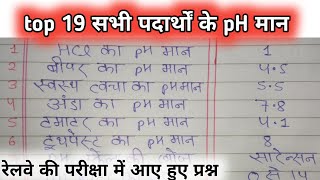 top 19 सभी पदार्थों के pH मान
1 HCl का pH मान 1
2 बीयर का pH मान 4.5
3 स्वस्थ त्वचा का pH मान 5.5
4 अंडा का pH मान 7.8
5 टमाटर का pH मान 4.1
6 टूथपेस्ट का pH मान 8
सोरेन्सन
रेलवे की परीक्षा में आए हुए प्रश्न
0 से 14